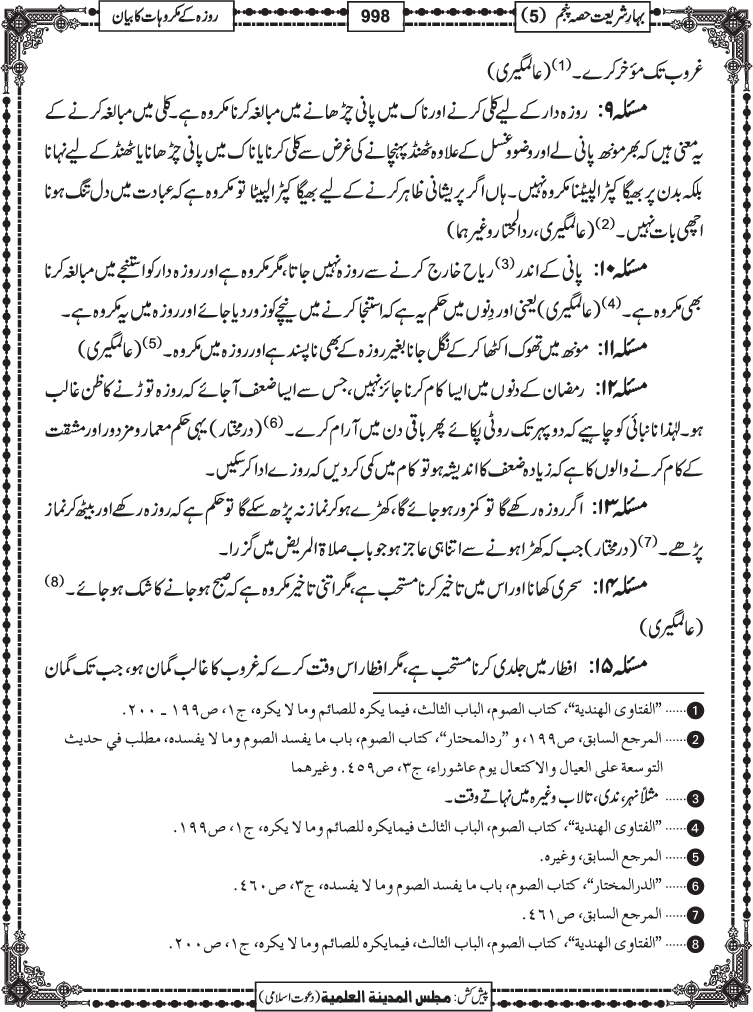 بہارِ شریعت حصہ پنجم (5)
998
روزہ کے مکروہات کا بیان
غروب تک مؤخر کرے۔(1) (عالمگیری)
مسئلہ ۹: روزہ دار کے لیے کلی کرنے اور ناک میں پانی چڑھانے میں مبالغہ کرنا مکروہ ہے۔ کلی میں مبالغہ کرنے کے
یہ معنی ہیں کہ بھر مونھ پانی لے اور وضو و غسل کے علاوہ ٹھنڈ پہنچانے کی غرض سے کلی کرنا یا ناک میں پانی چڑھانا یا ٹھنڈ کے لیے نہانا
بلکہ بدن پر بھیگا کپڑا لپیٹنا مکروہ نہیں۔ ہاں اگر پریشانی ظاہر کرنے کے لیے بھیگا کپڑا لپیٹا تو مکروہ ہے کہ عبادت میں دل تنگ ہونا
اچھی بات نہیں۔(2) (عالمگیری، ردالمحتار وغیرہما)
مسئلہ ۱۰: پانی کے اندر(3) ریاح خارج کرنے سے روزہ نہیں جاتا، مگر مکروہ ہے اور روزہ دار کو استنجے میں مبالغہ کرنا
بھی مکروہ ہے۔(4) (عالمگیری) یعنی اور دِنوں میں حکم یہ ہے کہ استنجا کرنے میں نیچے کو زور دیا جائے اور روزہ میں یہ مکروہ ہے۔
مسئلہ ۱۱: مونھ میں تھوک اکٹھا کر کے نگل جانا بغیر روزہ کے بھی ناپسند ہے اور روزہ میں مکروہ۔(5) (عالمگیری)
مسئلہ ۱۲: رمضان کے دنوں میں ایسا کام کرنا جائز نہیں، جس سے ایسا ضعف آجائے کہ روزہ توڑنے کا ظن غالب
ہو۔ لہٰذا نانبائی کو چاہیے کہ دوپہر تک روٹی پکائے پھر باقی دن میں آرام کرے۔(6) (درمختار) یہی حکم معمار و مزدور اور مشقت
کے کام کرنے والوں کا ہے کہ زیادہ ضعف کا اندیشہ ہو تو کام میں کمی کر دیں کہ روزے ادا کر سکیں۔
مسئلہ ۱۳: اگر روزہ رکھے گا تو کمزور ہو جائے گا، کھڑے ہو کر نماز نہ پڑھ سکے گا تو حکم ہے کہ روزہ رکھے اور بیٹھ کر نماز
پڑھے۔(7) (درمختار) جب کہ کھڑا ہونے سے اتنا ہی عاجز ہو جو باب صلاۃ المریض میں گزرا۔
مسئلہ ۱۴: سحری کھانا اور اس میں تاخیر کرنا مستحب ہے، مگر اتنی تاخیر مکروہ ہے کہ صبح ہو جانے کا شک ہو جائے۔(8)
(عالمگیری)
مسئلہ ۱۵: افطار میں جلدی کرنا مستحب ہے، مگر افطار اس وقت کرے کہ غروب کا غالب گمان ہو، جب تک گمان
1 ...... "الفتاوى الهندية"، كتاب الصوم، الباب الثالث، فيما يكره للصائم وما لا يكره، ج١، ص١٩٩ ـ ٢٠٠.
2 ...... المرجع السابق، ص١٩٩، و "ردالمحتار"، كتاب الصوم، باب ما يفسد الصوم وما لا يفسده، مطلب في حديث
التوسعة على العيال والاكتعال يوم عاشوراء، ج٣، ص٤٥٩. وغيرهما
3 ...... مثلاً نہر، ندی، تالاب وغیرہ میں نہاتے وقت۔
4 ...... "الفتاوى الهندية"، كتاب الصوم، الباب الثالث فيمايكره للصائم وما لا يكره، ج١، ص١٩٩.
5 ...... المرجع السابق، وغيره.
6 ...... "الدرالمختار"، كتاب الصوم، باب ما يفسد الصوم وما لا يفسده، ج٣، ص٤٦٠.
7 ...... المرجع السابق، ص٤٦١.
8 ...... "الفتاوى الهندية"، كتاب الصوم، الباب الثالث، فيمايكره للصائم وما لا يكره، ج١، ص٢٠٠.
پیش کش: مجلس المدینة العلمیة (دعوت اسلامی)